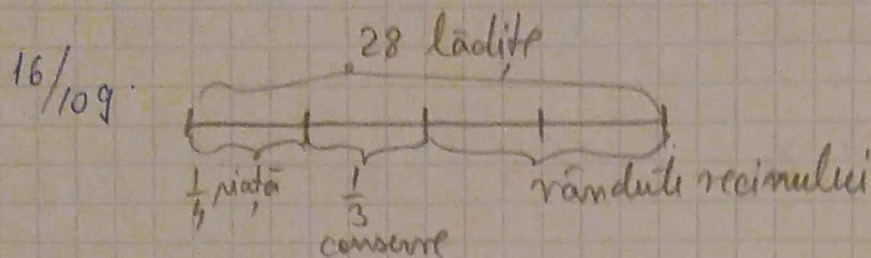 16/109.
28 lădițe
1/4 piață
1/3 conserve
vândute vecinului